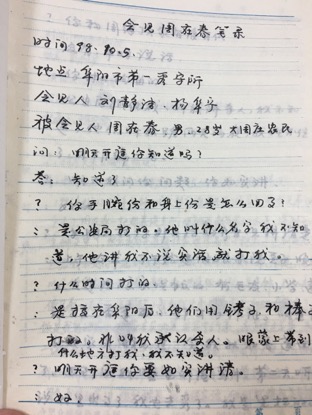 会见周在春笔录
时间 98.10.5.
地点 阜阳市第一看守所
会见人 刘静洁、杨
被会见人 周在春，男，28岁，大周庄农民
问：明天开庭你知道吗？
答：知道了
？ 你手腕伤和身上伤是怎么回事？
：是公安局打的。他叫什么名字我不知
道，他讲我不说实话，就打我。
？ 什么时间打的。
：是接在阜阳后，他们用铐子和棒子
打的，非叫我承认杀人。眼蒙上带到
什么地方打我，我不知道。
？ 明天开庭你要如实讲清。
：好。